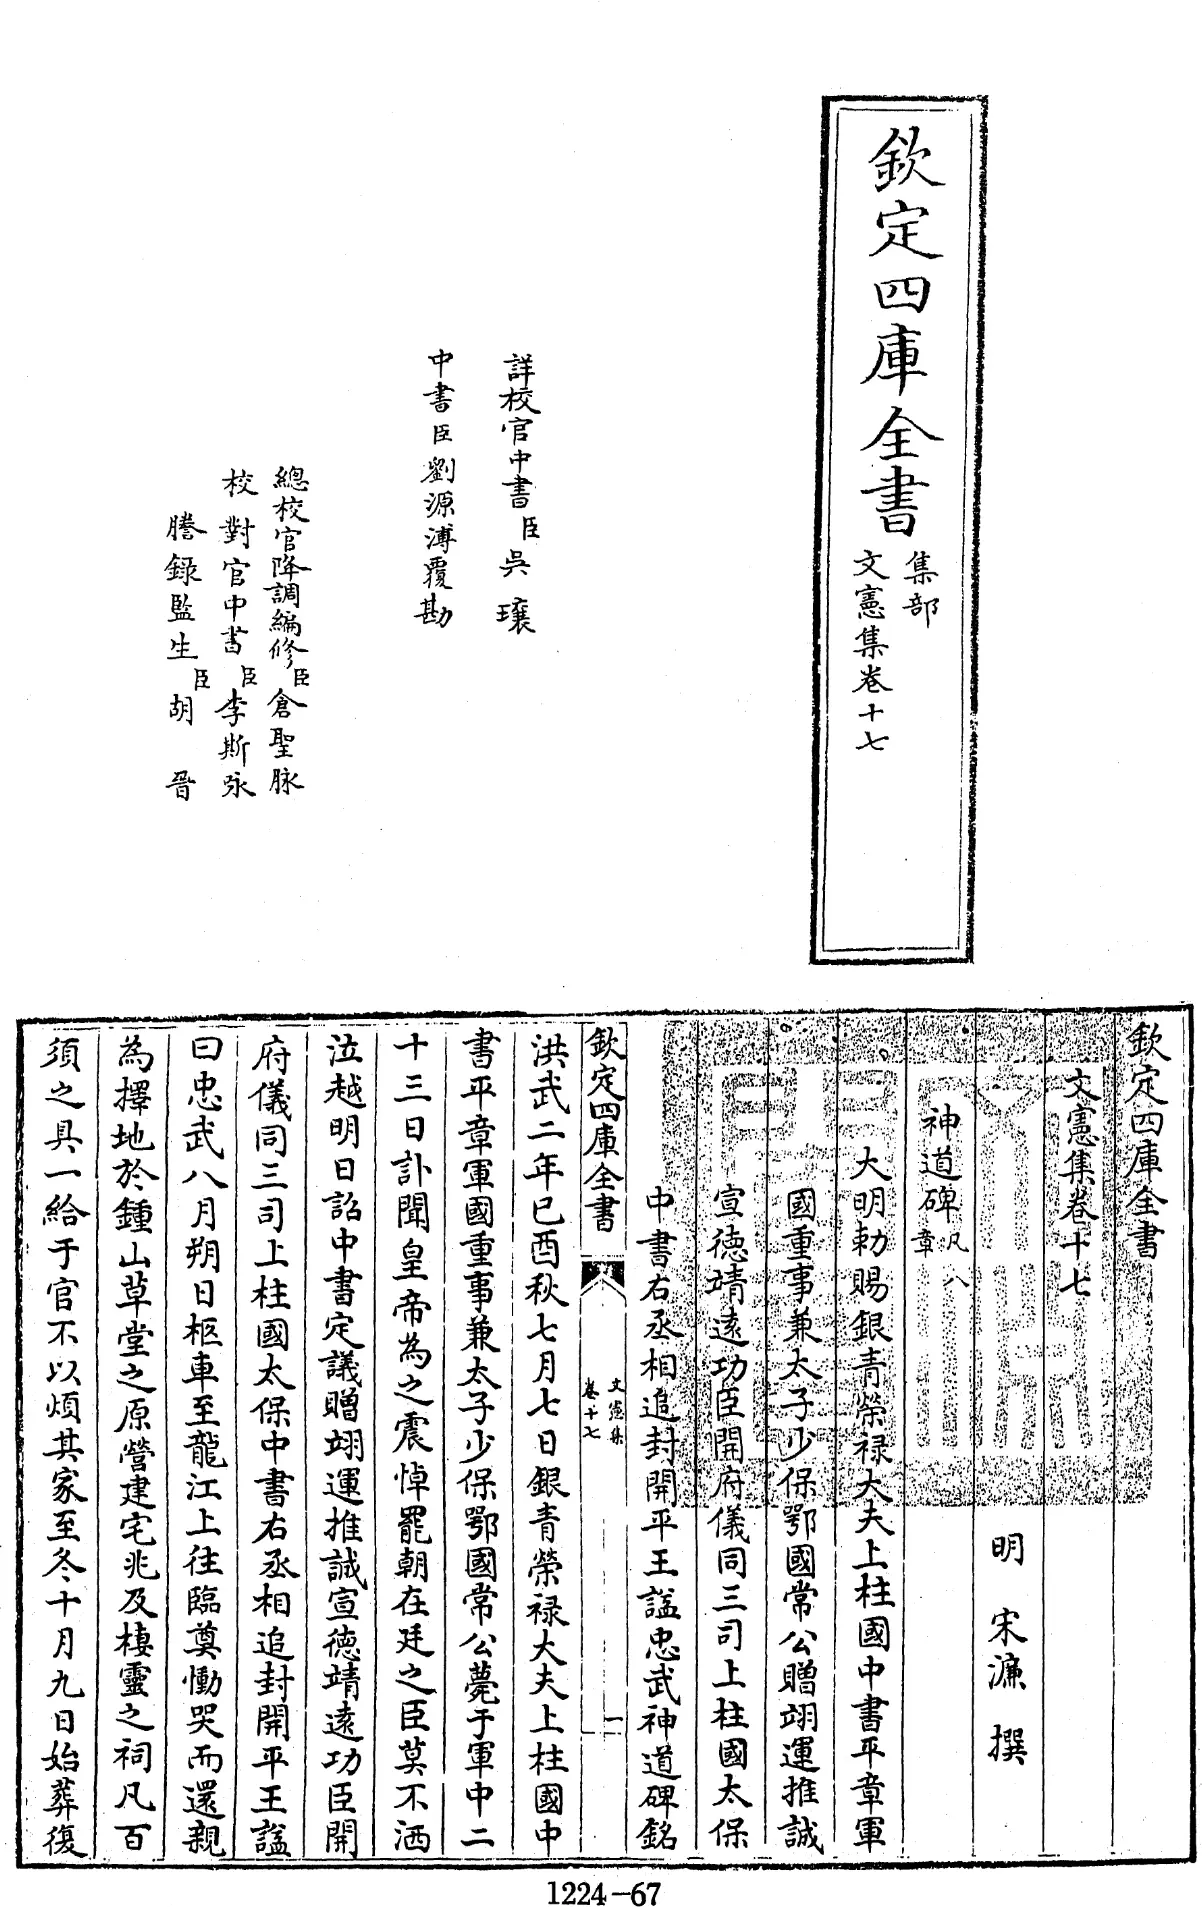 欽定四庫全書
集部
文憲集卷十七
詳校官中書臣吳瓖
中書臣劉源溥覆勘
總校官降調編修臣倉聖脉
校對官中書臣李斯咏
謄錄監生臣胡晉
欽定四庫全書
文憲集卷十七
明 宋濂 撰
神道碑凡八章
大明勅賜銀青榮禄大夫上柱國中書平章軍
國重事兼太子少保鄂國常公贈翊運推誠
宣徳靖逺功臣開府儀同三司上柱國太保
中書右丞相追封開平王諡忠武神道碑銘
欽定四庫全書
文憲集
卷十七
一
洪武二年已酉秋七月七日銀青榮禄大夫上柱國中
書平章軍國重事兼太子少保鄂國常公薨于軍中二
十三日訃聞皇帝為之震悼罷朝在廷之臣莫不洒
泣越明日詔中書定議贈翊運推誠宣徳靖逺功臣開
府儀同三司上柱國太保中書右丞相追封開平王諡
曰忠武八月朔日柩車至龍江上往臨奠慟哭而還親
為擇地於鍾山草堂之原營建宅兆及棲靈之祠凡百
須之具一給于官不以煩其家至冬十月九日始葬復
1224-67